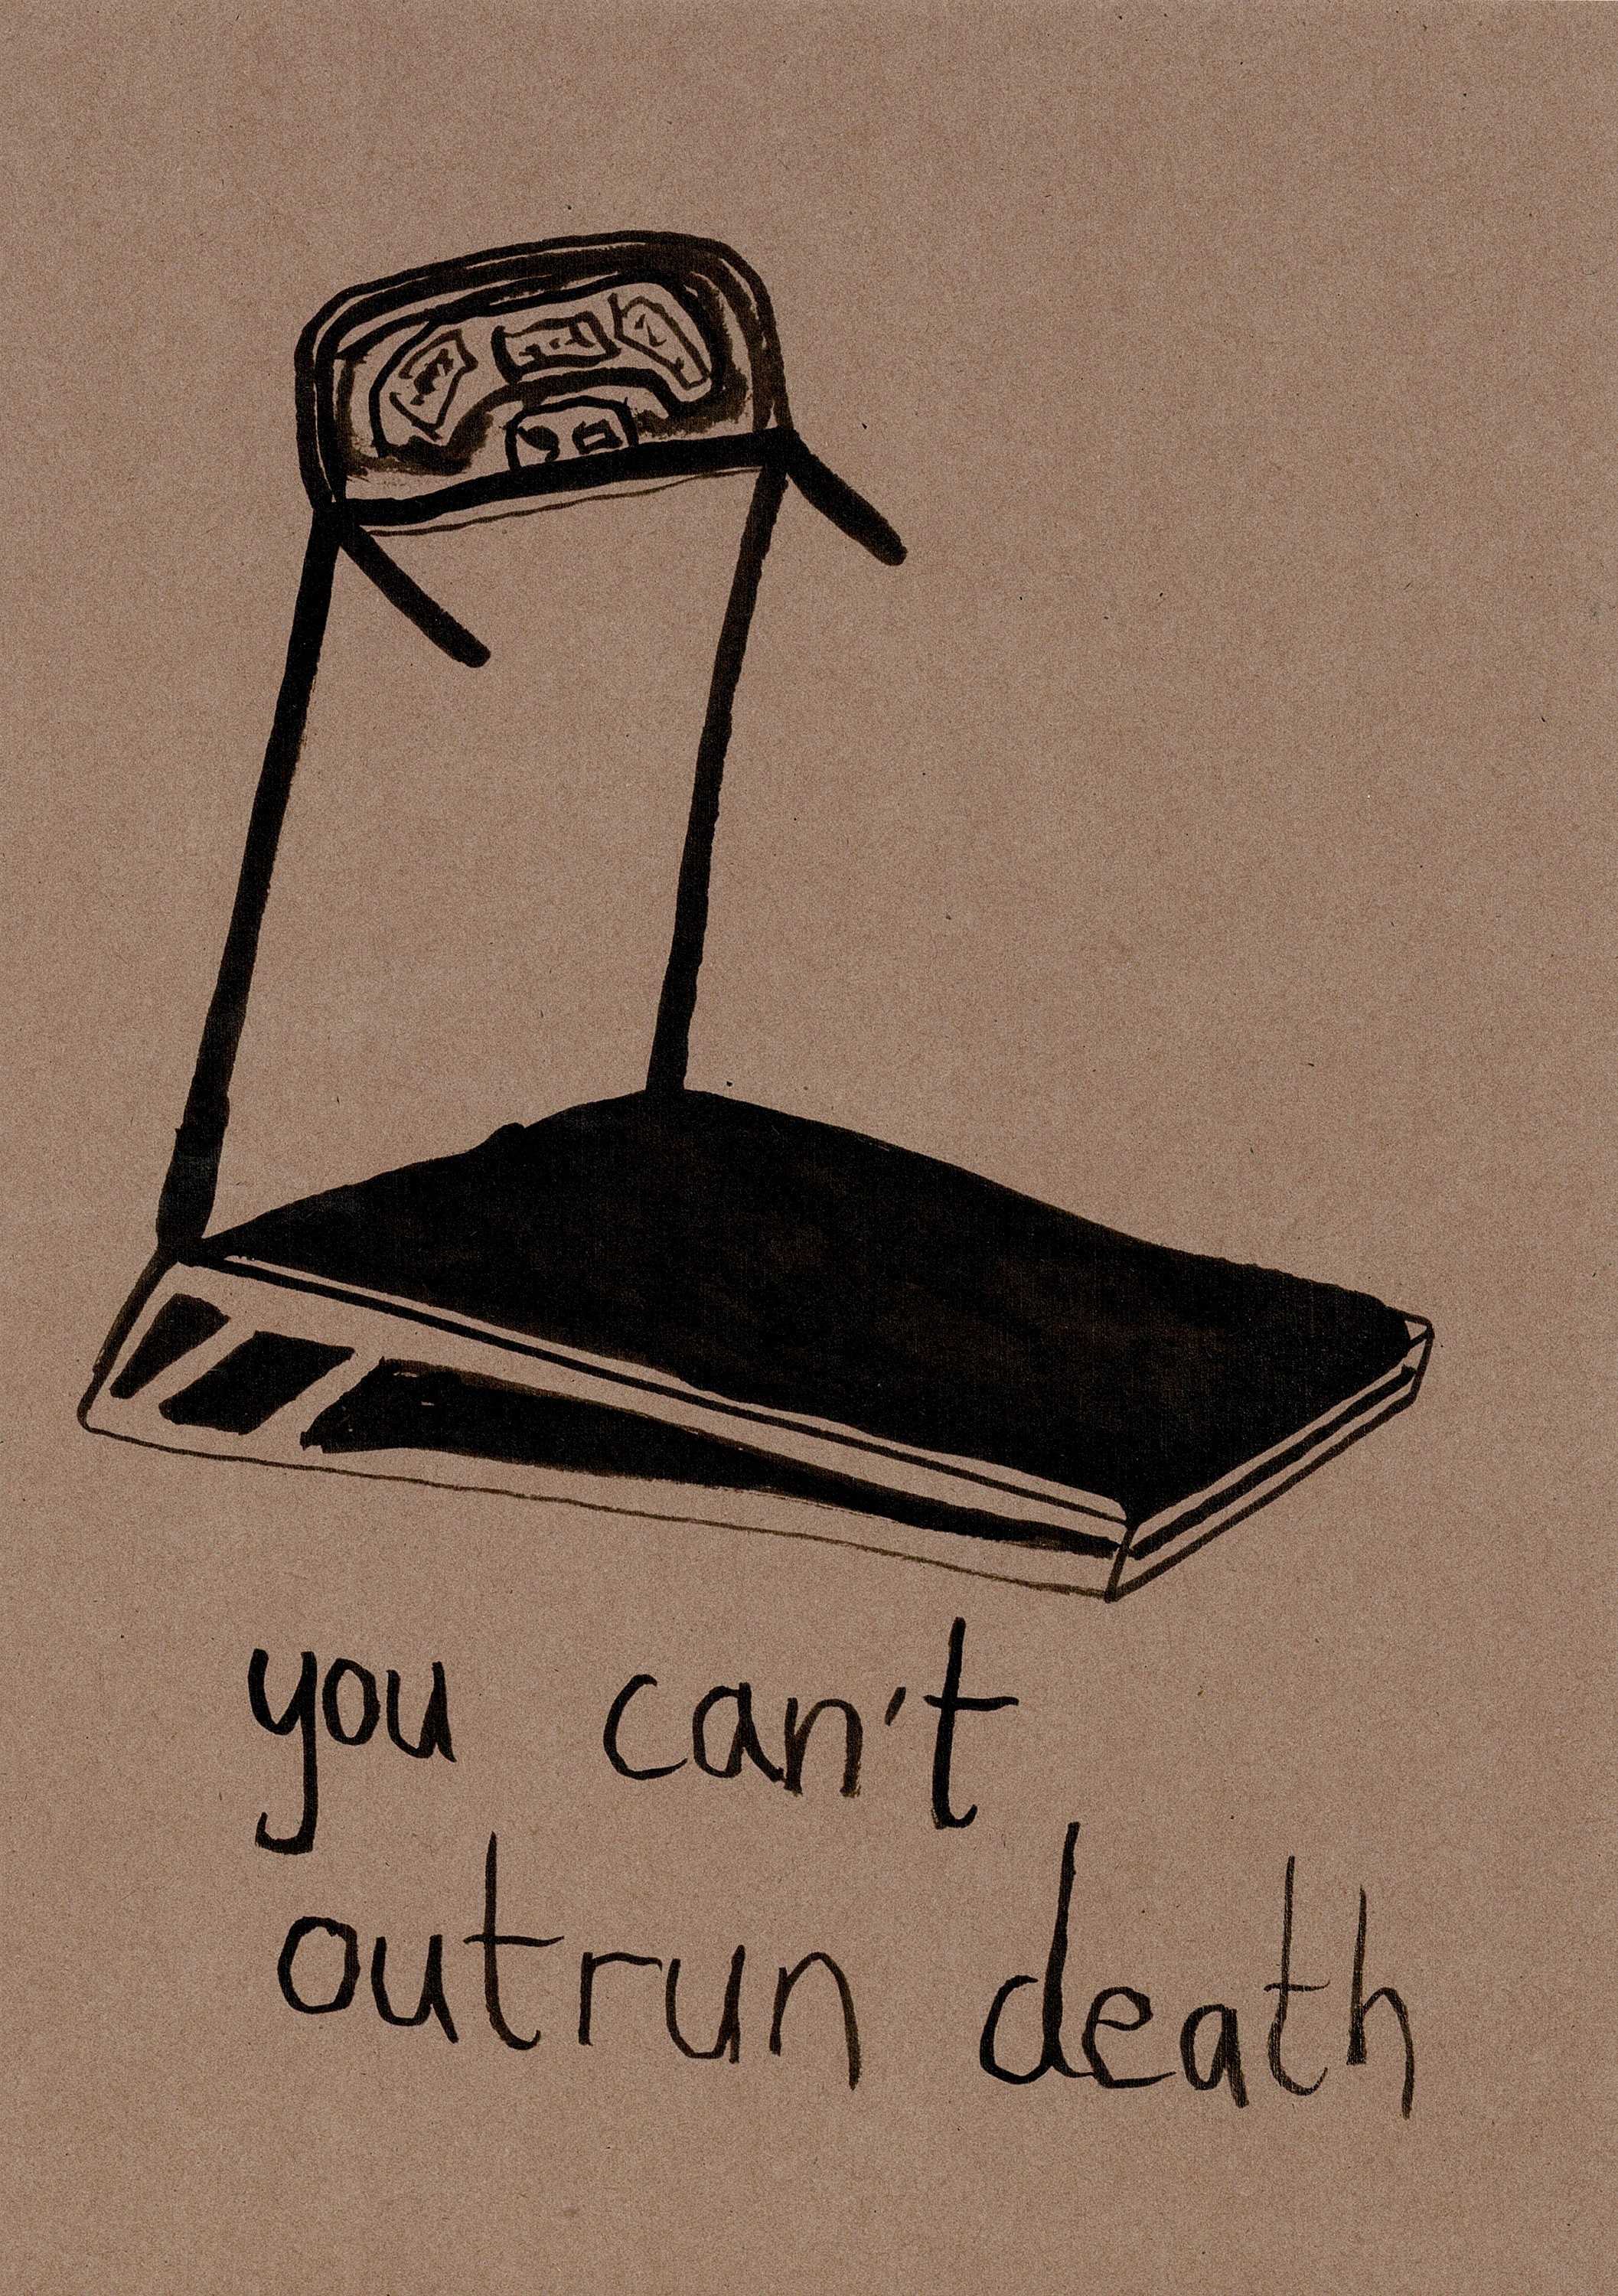 you can't
outrun death